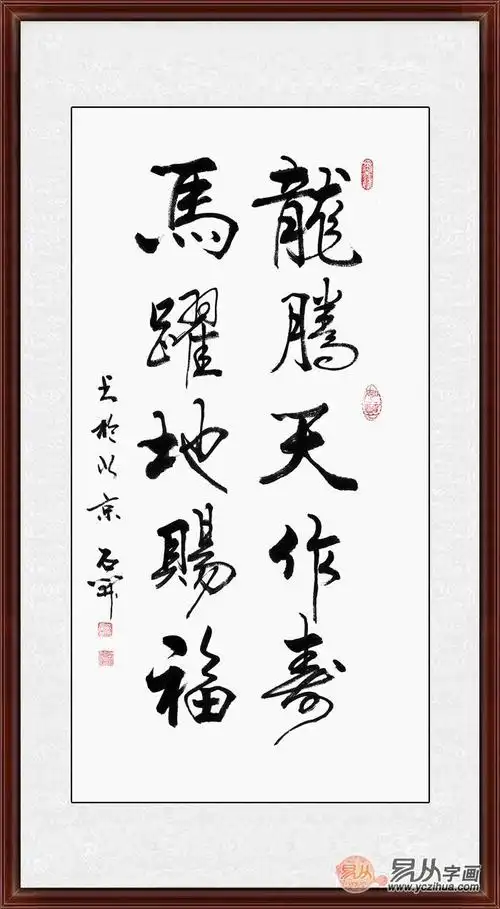 龍騰天作寿
馬躍地賜福
书於北京 石開
易从字画
www.yczihua.com